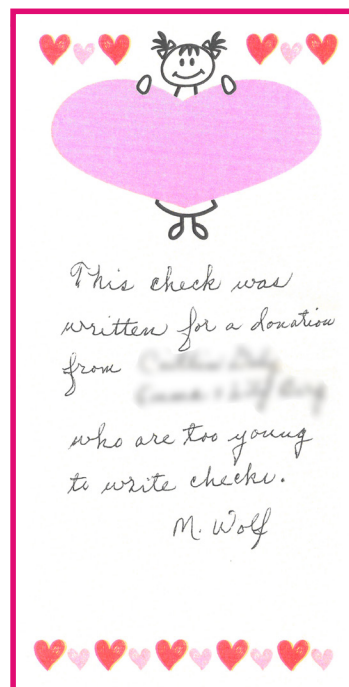 This check was
written for a donation
from
who are too young
to write checks.
M. Wolf